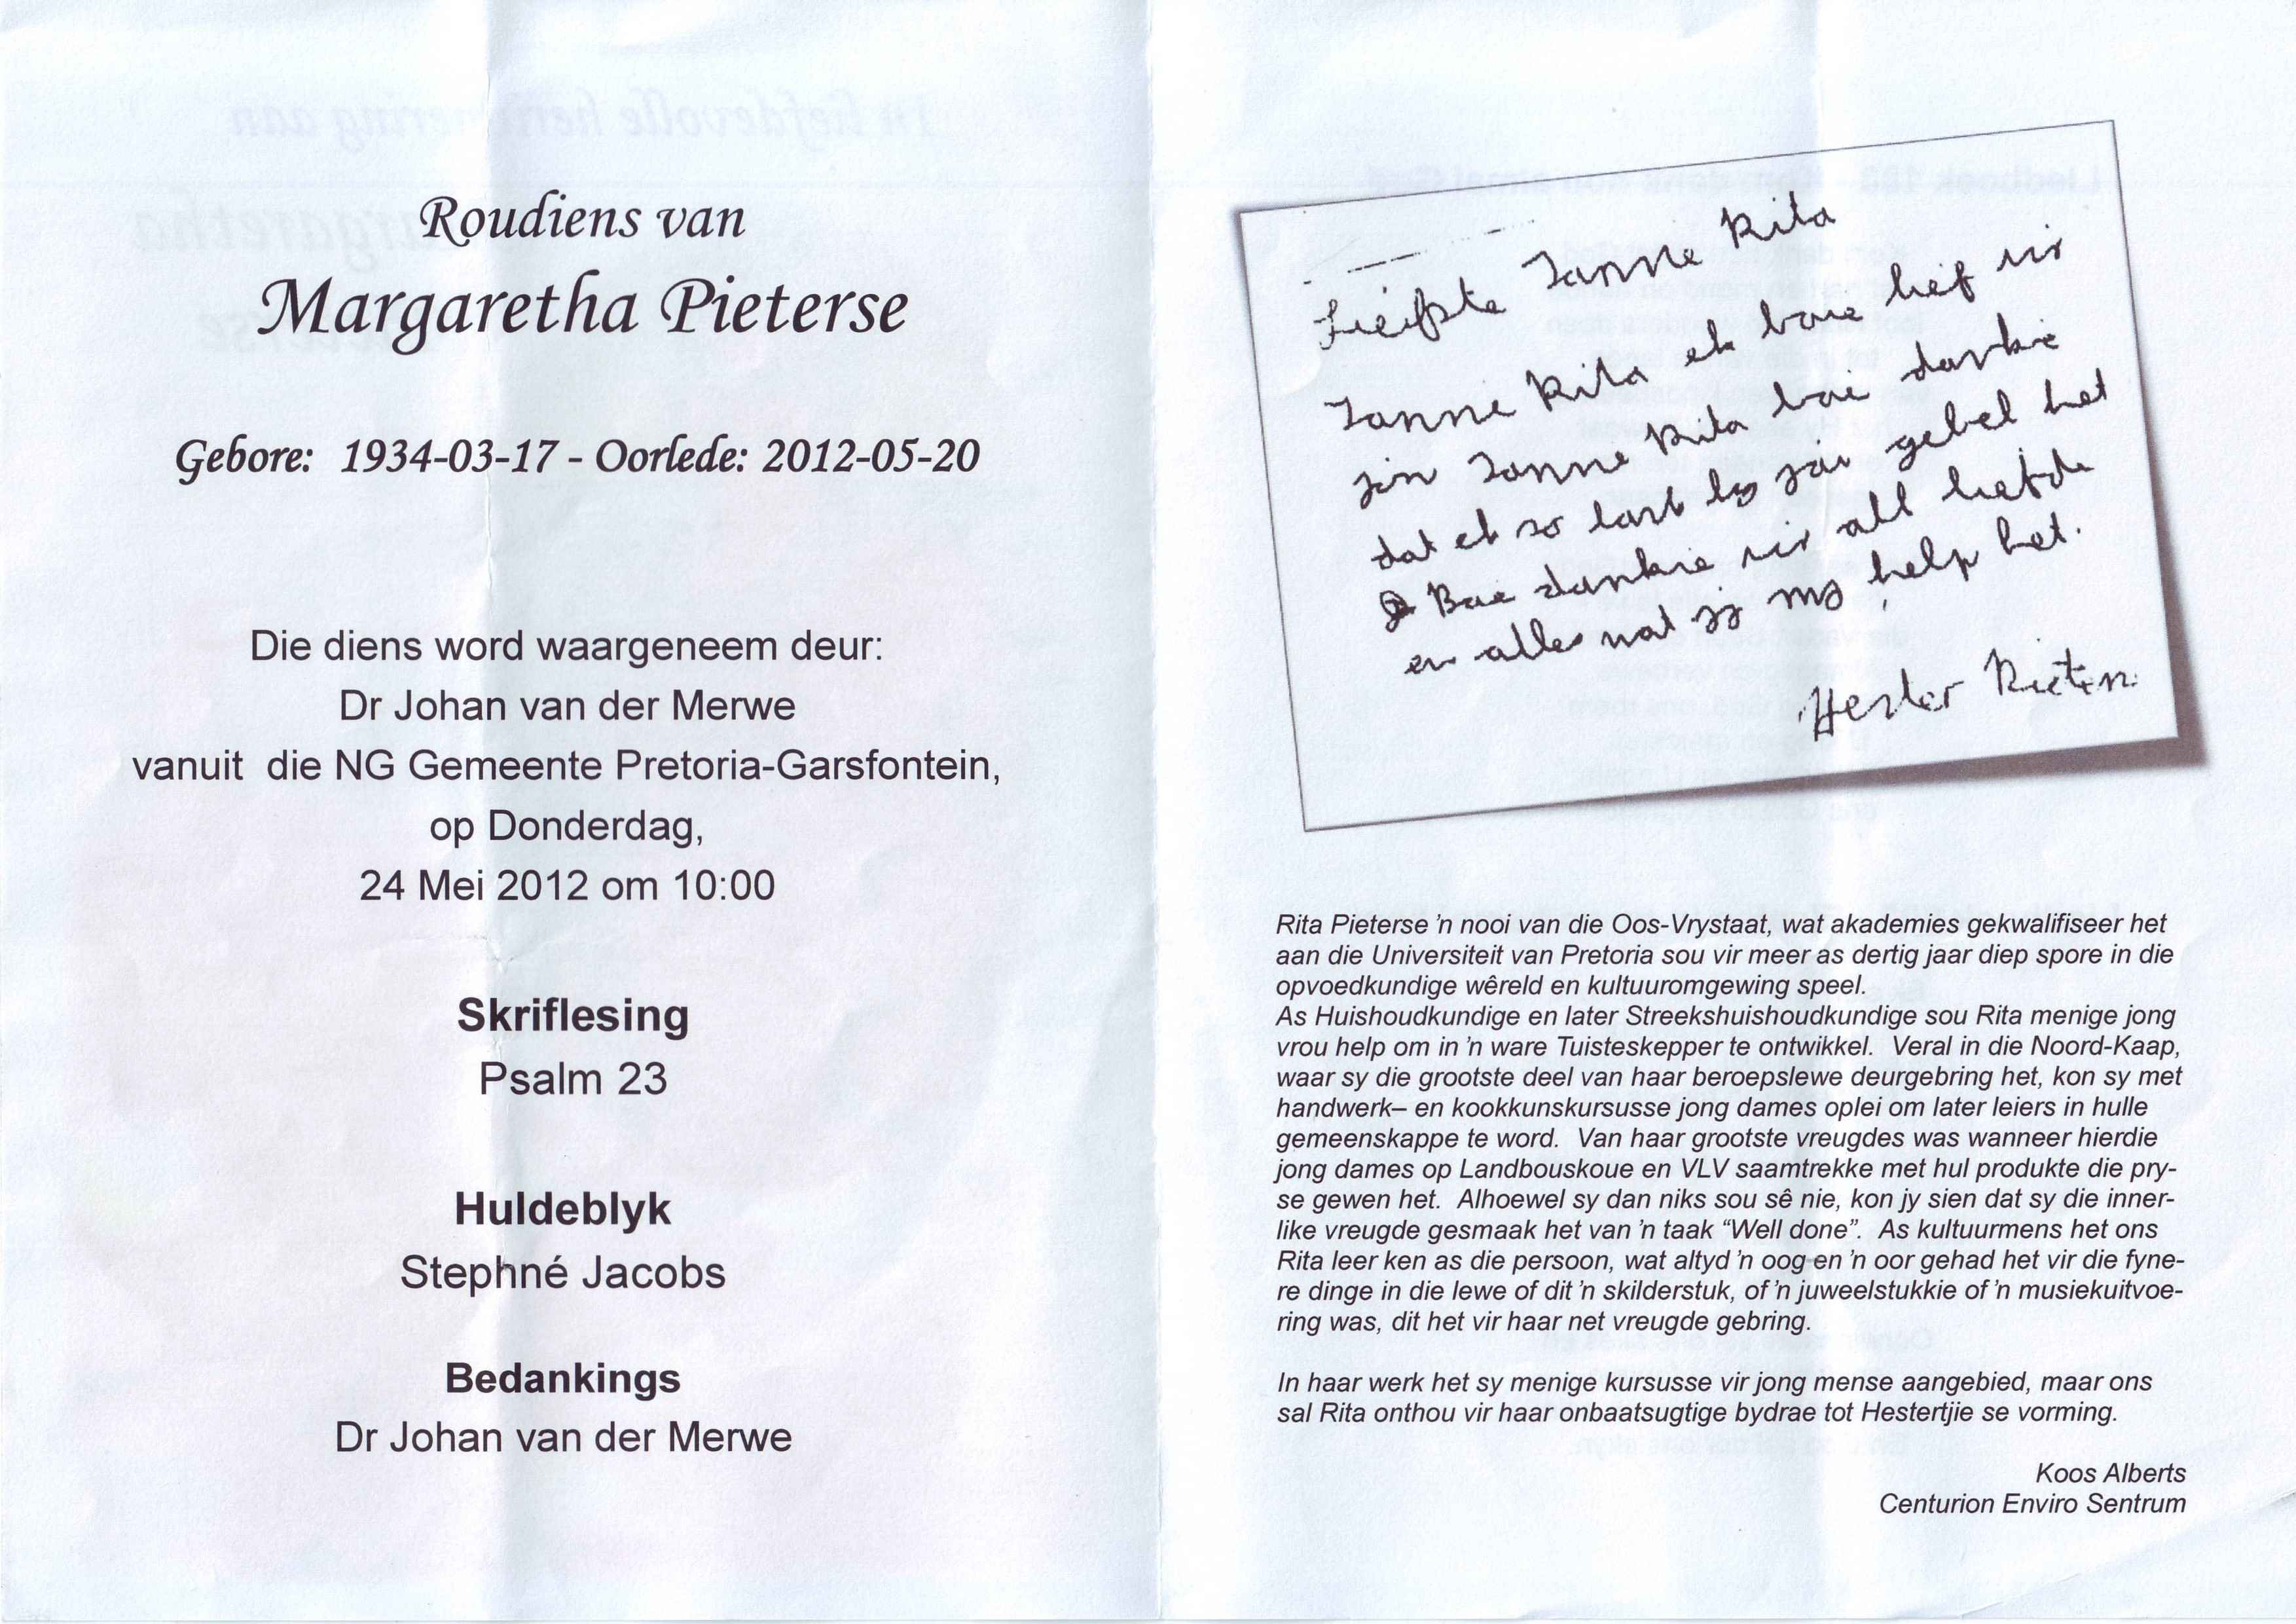 Roudiens van
Margaretha Pieterse
Gebore: 1934-03-17 - Oorlede: 2012-05-20
Die diens word waargeneem deur:
Dr Johan van der Merwe
vanuit die NG Gemeente Pretoria-Garsfontein,
op Donderdag,
24 Mei 2012 om 10:00
Skriflesing
Psalm 23
Huldeblyk
Stephné Jacobs
Bedankings
Dr Johan van der Merwe
Liefste Tanne Rita
Tanne Rita ek baie lief vir
Tanne Rita bai dankie
dat ek so by jai gebel het
Bai dankie vir all liefde
en alles wat jy my help het.
Hester
Rita Pieterse 'n nooi van die Oos-Vrystaat, wat akademies gekwalifiseer het
aan die Universiteit van Pretoria sou vir meer as dertig jaar diep spore in die
opvoedkundige wêreld en kultuuromgewing speel.
As Huishoudkundige en later Streekshuishoudkundige sou Rita menige jong
vrou help om in 'n ware Tuisteskepper te ontwikkel. Veral in die Noord-Kaap,
waar sy die grootste deel van haar beroepslewe deurgebring het, kon sy met
handwerk– en kookkunskursusse jong dames oplei om later leiers in hulle
gemeenskappe te word. Van haar grootste vreugdes was wanneer hierdie
jong dames op Landbouskoue en VLV saamtrekke met hul produkte die pry-
se gewen het. Alhoewel sy dan niks sou sê nie, kon jy sien dat sy die inner-
like vreugde gesmaak het van 'n taak “Well done”. As kultuurmens het ons
Rita leer ken as die persoon, wat altyd 'n oog en 'n oor gehad het vir die fyne-
re dinge in die lewe of dit 'n skilderstuk, of 'n juweelstukkie of 'n musiekuitvoe-
ring was, dit het vir haar net vreugde gebring.
In haar werk het sy menige kursusse vir jong mense aangebied, maar ons
sal Rita onthou vir haar onbaatsugtige bydrae tot Hestertjie se vorming.
Koos Alberts
Centurion Enviro Sentrum